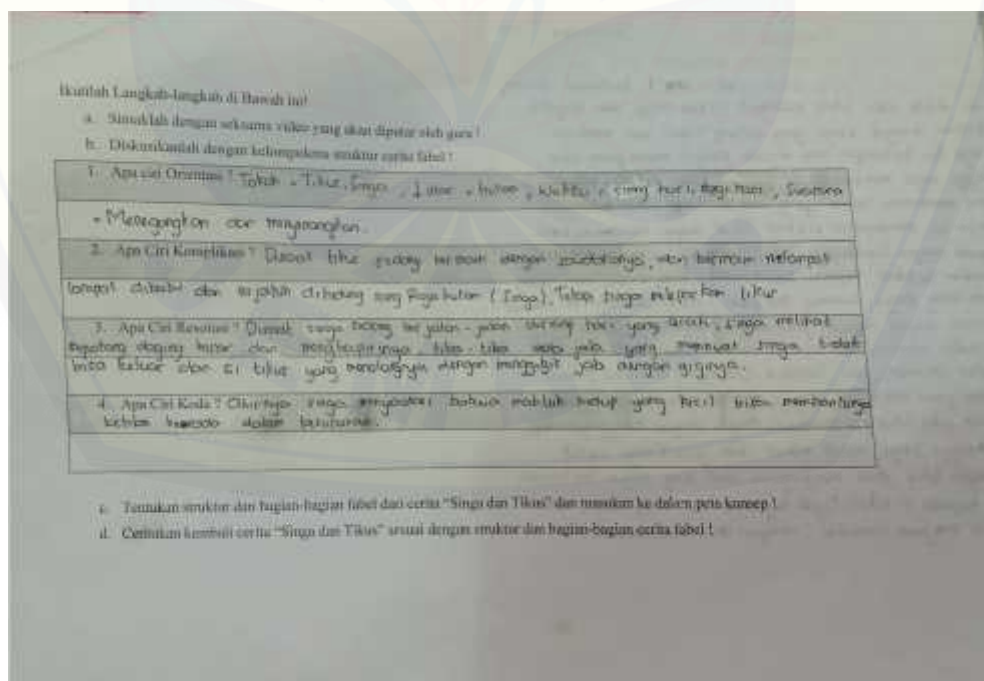 Ikutilah Langkah-langkah di Bawah ini!
a. Simaklah dengan seksama video yang akan diputar oleh guru !
b. Diskusikanlah dengan kelompokmu struktur cerita fabel !
1. Apa ciri Orientasi ? Tokoh = Tikus, Singa, Latar = hutan, Waktu = siang hari, Pagi hari, Suasana
= Menegangkan dan menyenangkan.
2. Apa Ciri Komplikasi ? Disaat tikus sedang bermain dengan saudaranya, dan bermain melompat
lompat dan terjatuh Raja hutan (Singa), Tetapi singa tikur
3. Apa Ciri Resolusi ? Disaat singa sedang berjalan-jalan siang hari yang , singa melihat
sepotong daging besar dan menghampirinya, tiba-tiba ada jala yang membuat singa tidak
bisa keluar dan si tikus yang menolongnya dengan menggigit jala dengan giginya.
4. Apa Ciri Koda ? Akhirnya singa menyadari bahwa makhluk hidup yang kecil bisa membantunya
ketika berada dalam
c. Tentukan struktur dan bagian-bagian fabel dari cerita “Singa dan Tikus” dan masukan ke dalam peta konsep !
d. Ceritakan kembali cerita “Singa dan Tikus” sesuai dengan struktur dan bagian-bagian cerita fabel !